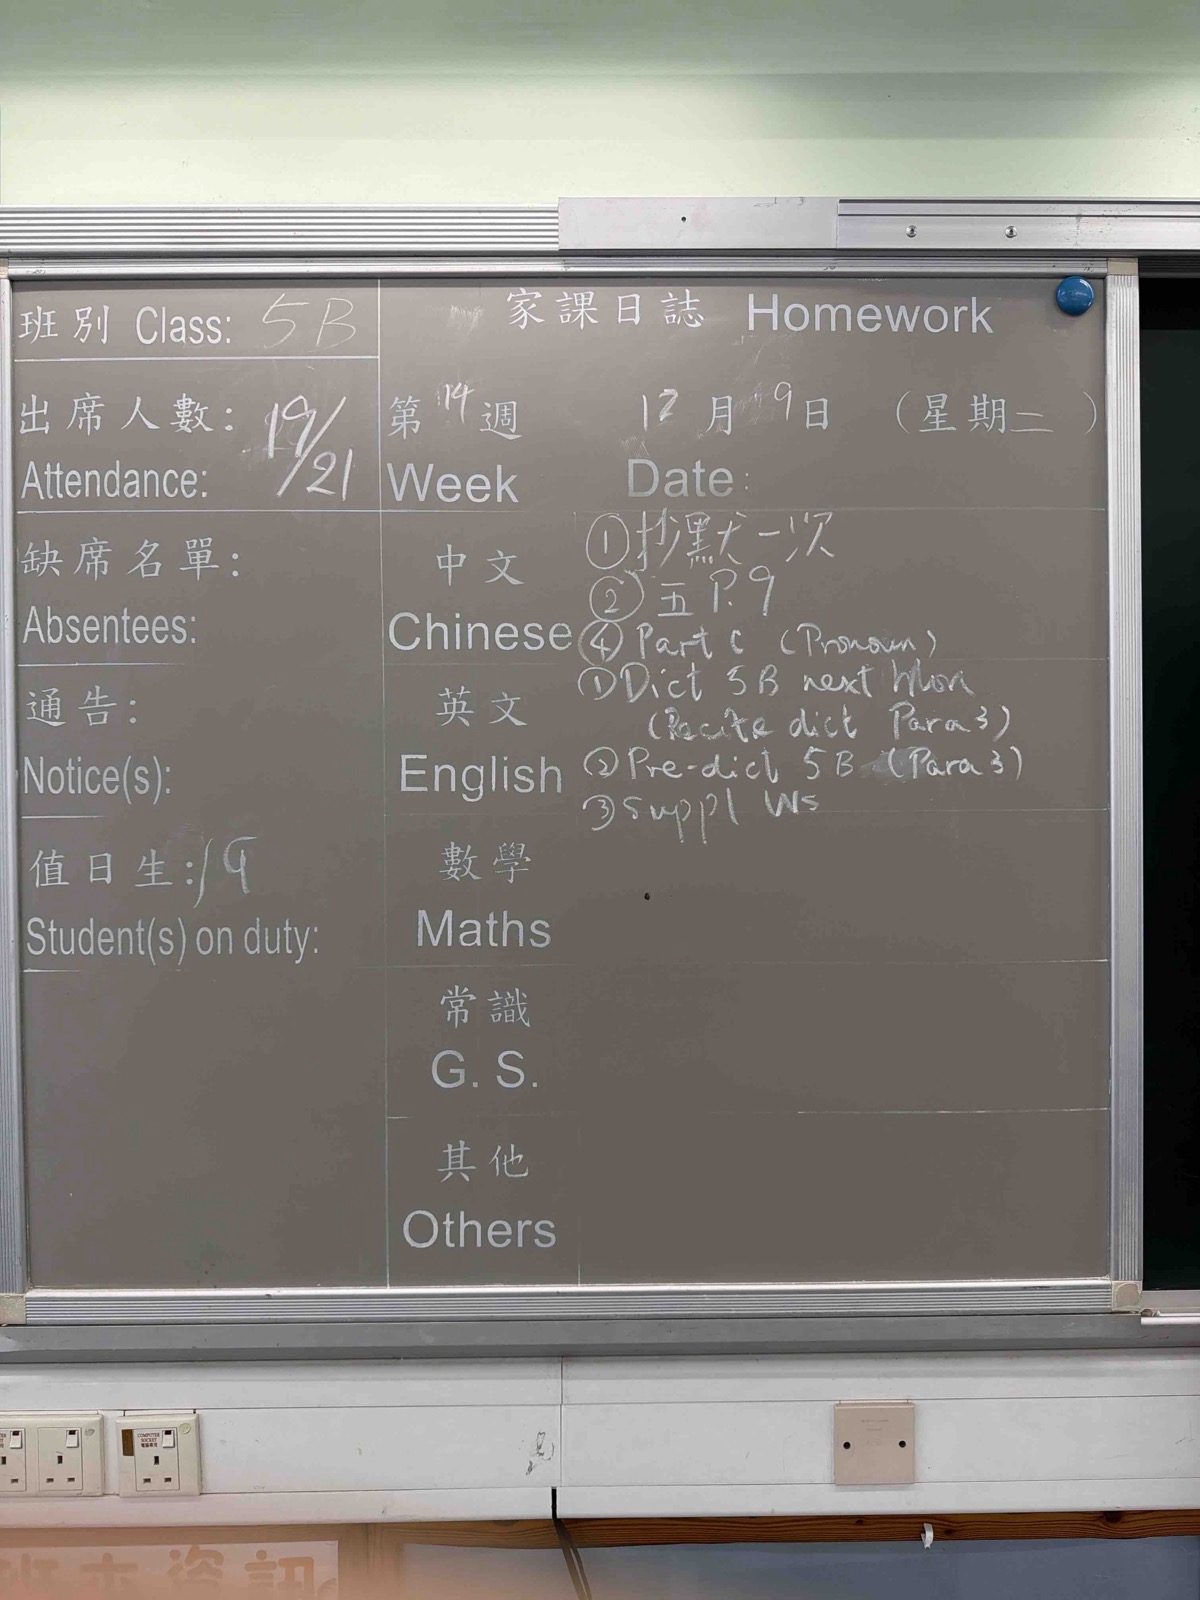 班別 Class: 5B
家課日誌 Homework
出席人數: 19/21
Attendance:
第 14 週 12 月 9 日 (星期二)
Week Date:
缺席名單:
Absentees:
通告:
Notice(s):
值日生: 19
Student(s) on duty:
中文
Chinese
① 抄默一次
② 五 P.9
④ Part C (Pronoun)
英文
English
① Dict 5B next Mon
(Recite dict Para 3)
② Pre-dict 5B (Para 3)
③ Suppl Ws
數學
Maths
常識
G. S.
其他
Others
COMPUTER
SOCKET